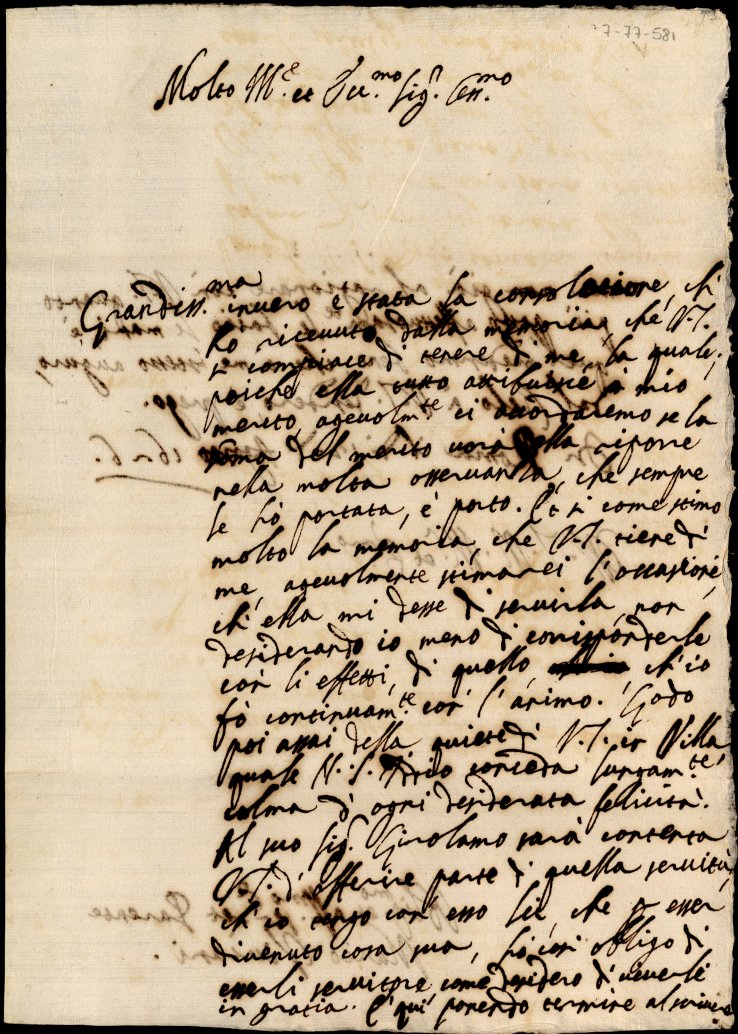 7-77-581
Molto Mᶜ. et Ecc.ᵐᵒ Sigʳ. Oss.ᵐᵒ
Grandiss.ᵐᵃ invero è stata la consolatione, ch'
ho ricevuto dalla memoria, che V.S.
si compiace di tenere di me, la quale,
poiche ella tutto attribuisce à mio
merito, agevolm.ᵗᵉ ci accordaremo se la
soma del merito vorà ella riporre
nella molta osservanza, che sempre
le hò portata, è porto. Et si come stimo
molto la memoria, che V.S. tiene di
me, agevolmente stimarei l'occasione
ch'ella mi desse di servirla, non
desiderando io meno di corrisponderle
con li effetti, di quello, ch'io
fò continuam.ᵗᵉ con l'animo. Godo
poi assai della quiete di V.S. in Villa
quale N.S. Iddio conceda lungam.ᵗᵉ
colma d'ogni desiderata felicità.
Al suo Sigʳ. Girolamo sarà contenta
V.S. d'offerire parte di quella servitù,
ch'io tengo con esso lei, che p esser
divenuto cosa sua, hò così obligo di
esserli servitore come desidero di viverle
in gratia. E quì ponendo termine al scrivere